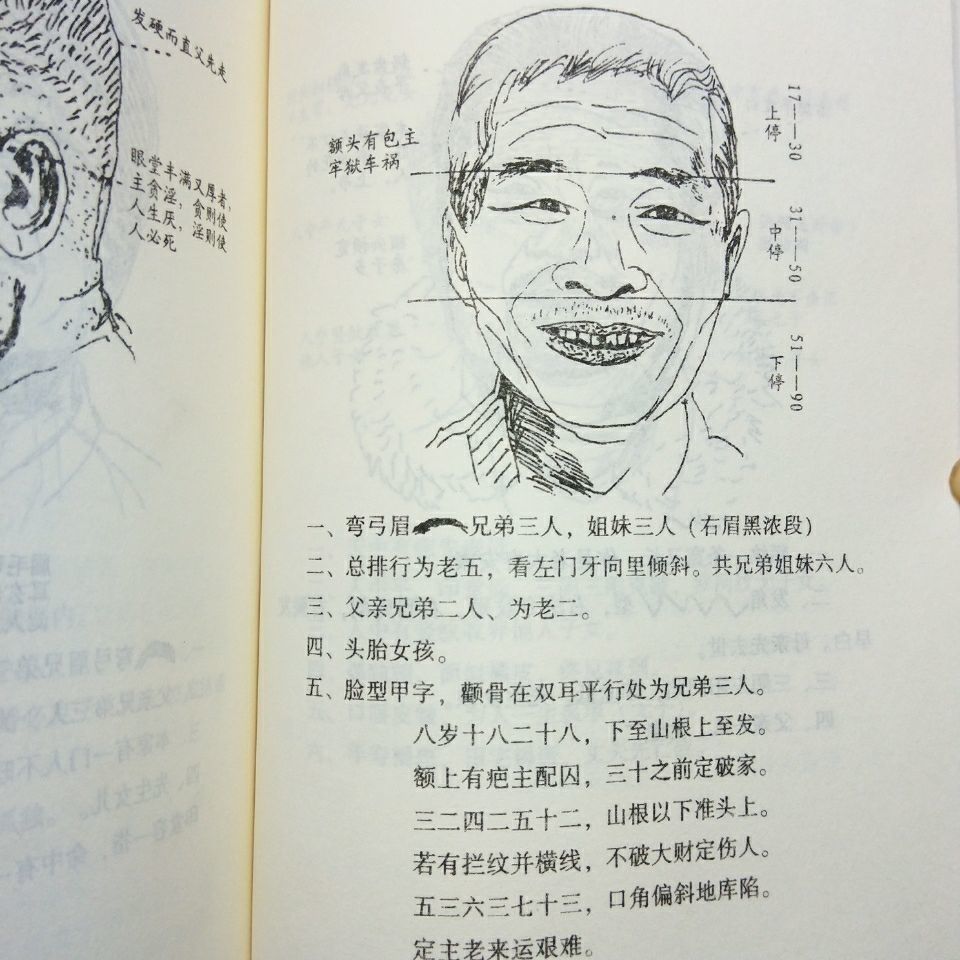 发硬而直父先走
眼堂丰满又厚者，
主贪淫，贪则使
人生厌，淫则使
人必死
额头有包主
牢狱车祸
17——30
上停
31——50
中停
51——90
下停
一、弯弓眉 兄弟三人，姐妹三人（右眉黑浓段）
二、总排行为老五，看左门牙向里倾斜。共兄弟姐妹六人。
三、父亲兄弟二人、为老二。
四、头胎女孩。
五、脸型甲字，颧骨在双耳平行处为兄弟三人。
八岁十八二十八，下至山根上至发。
额上有疤主配囚，三十之前定破家。
三二四二五十二，山根以下准头上。
若有拦纹并横线，不破大财定伤人。
五三六三七十三，口角偏斜地库陷。
定主老来运艰难。